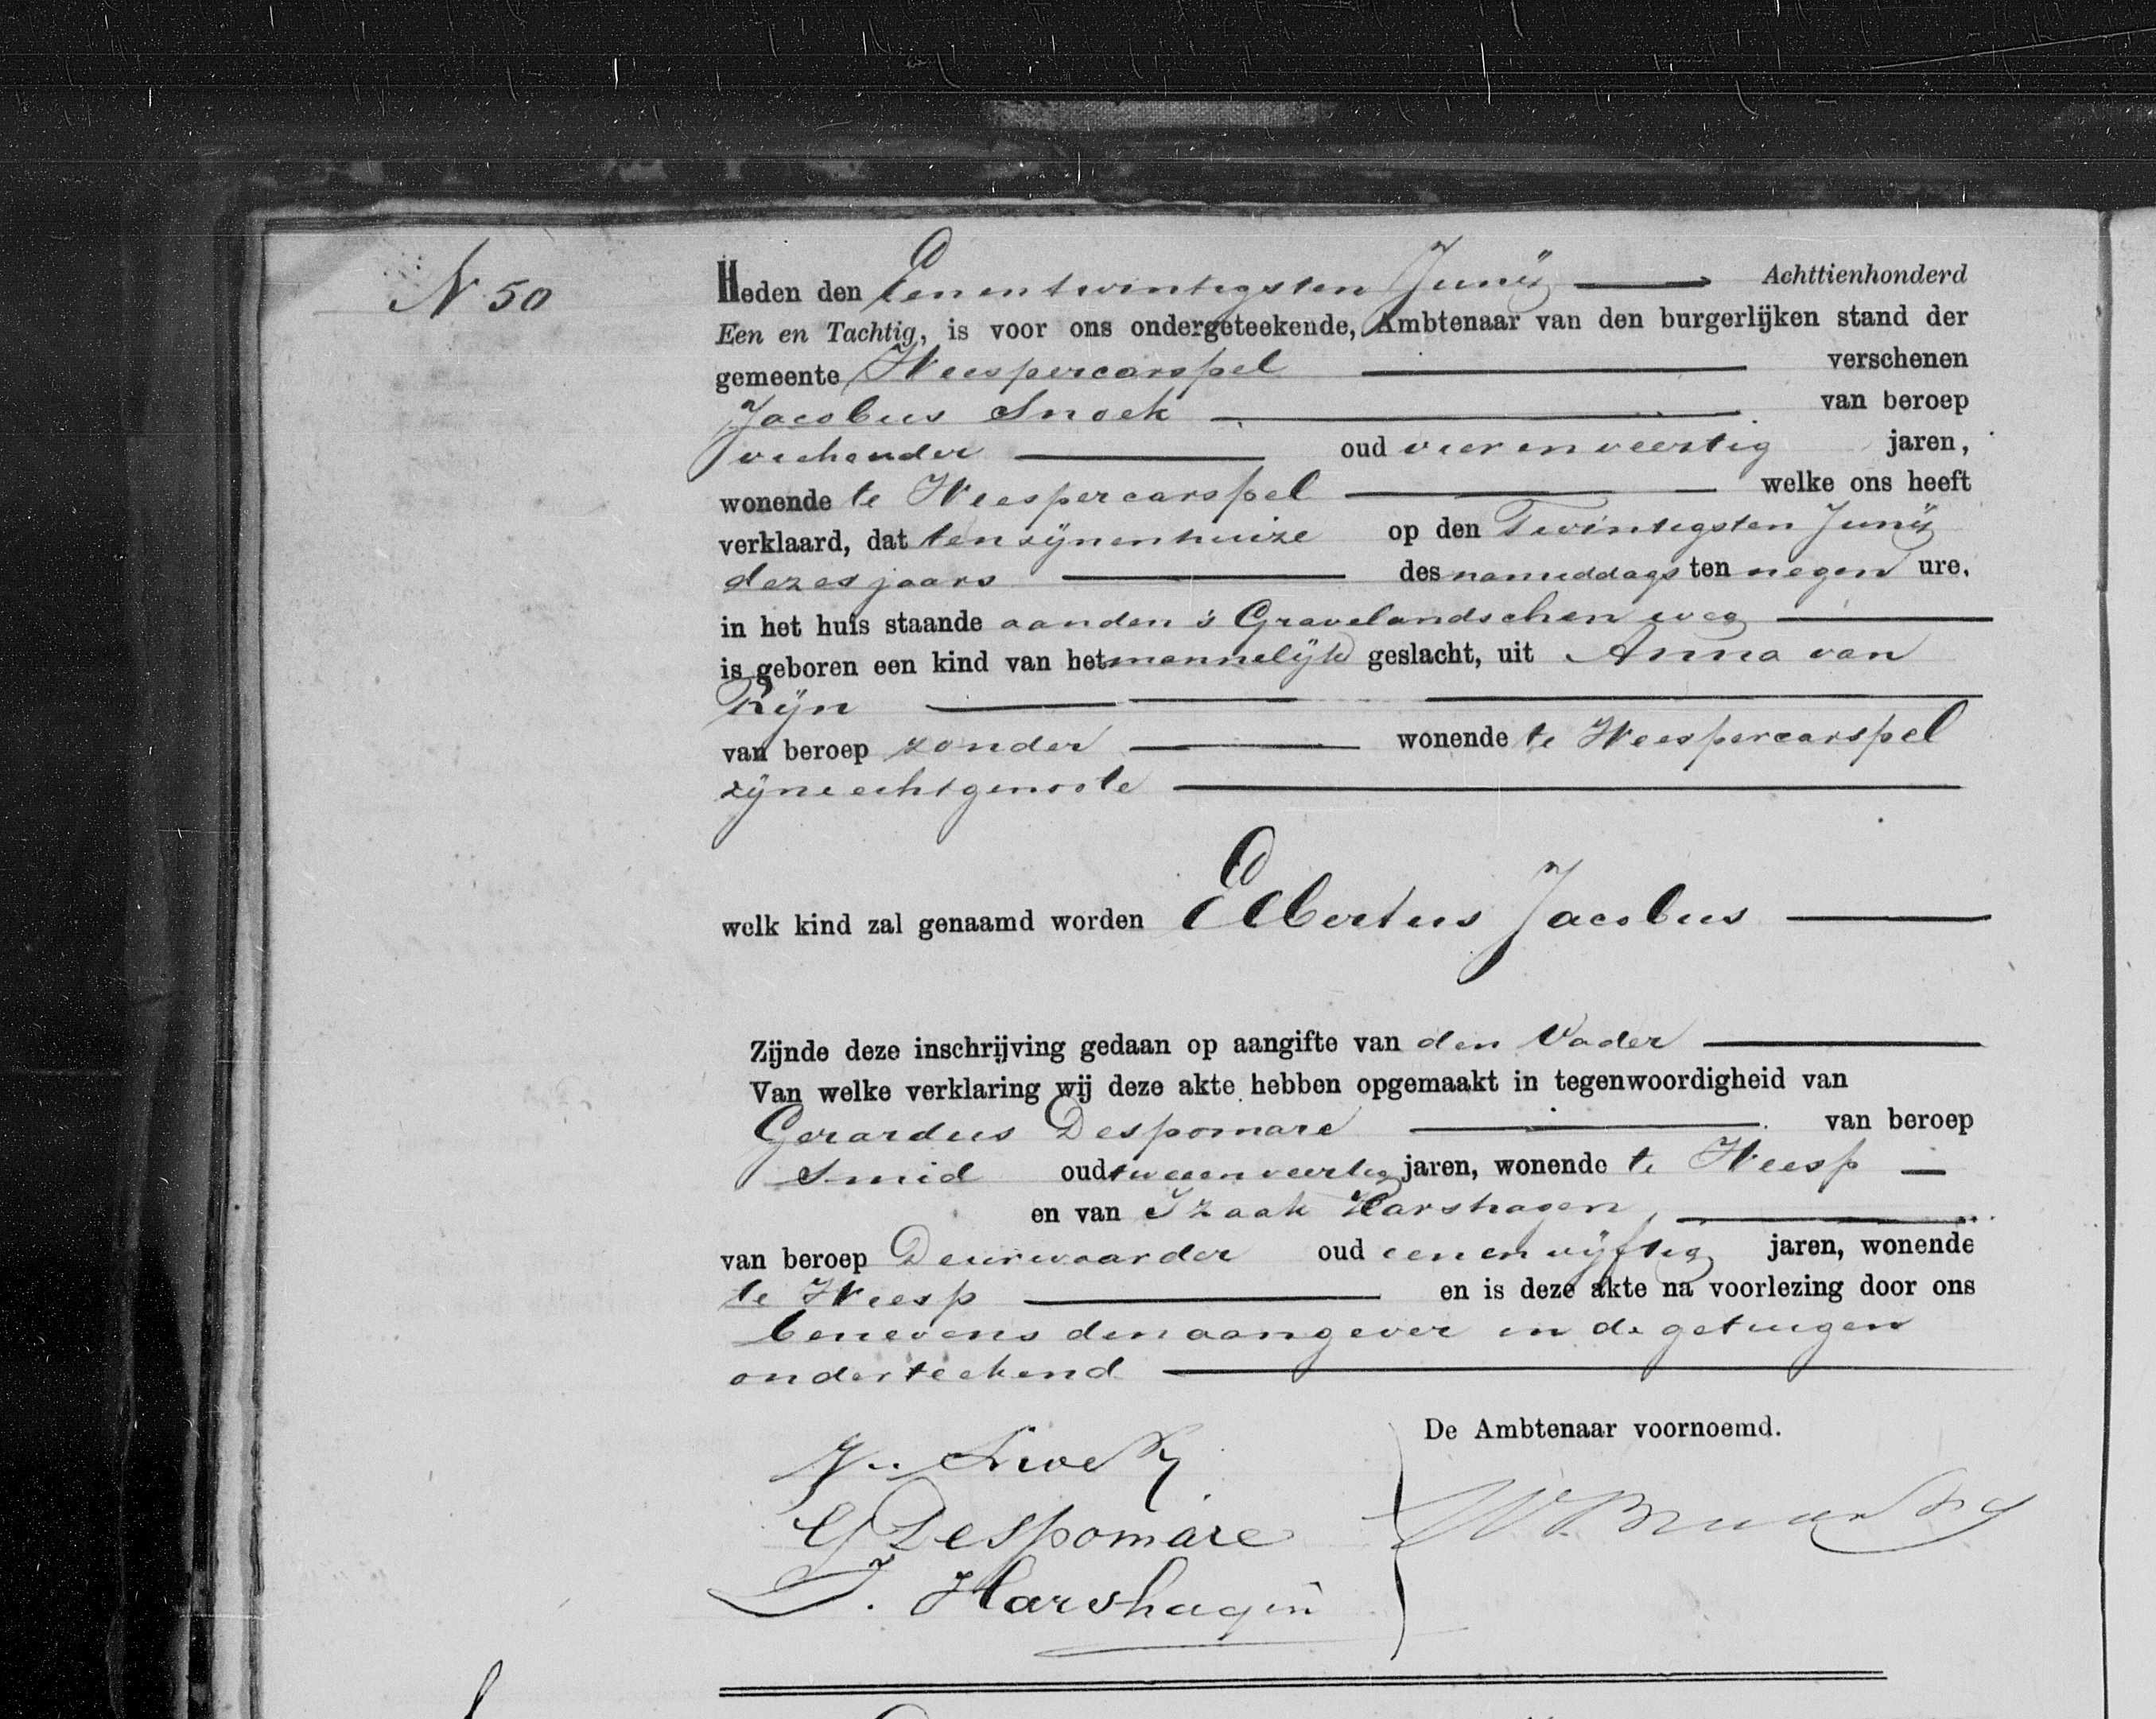 N 50
Heden den Eenentwintigsten Junij Achttienhonderd
Een en Tachtig, is voor ons ondergeteekende, Ambtenaar van den burgerlijken stand der
gemeente Weespercarspel verschenen
Jacobus Snoek van beroep
veehouder oud vierenveertig jaren,
wonende te Weespercarspel welke ons heeft
verklaard, dat ten zijnenhuize op den Twintigsten Junij
dezes jaars des nameddags ten negen ure,
in het huis staande aanden 's Gravelandschen weg
is geboren een kind van het mannelijk geslacht, uit Anna van
Rijn
van beroep zonder wonende te Weespercarspel
zijne echtgenoote
welk kind zal genaamd worden Elbertus Jacobus
Zijnde deze inschrijving gedaan op aangifte van den Vader
Van welke verklaring wij deze akte hebben opgemaakt in tegenwoordigheid van
Gerardus Despomare van beroep
Smid oud tweeenveertig jaren, wonende te Weesp
en van Izaak Harshagen,
van beroep Deurwaarder oud eenenvijftig jaren, wonende
te Weesp en is deze akte na voorlezing door ons
benevens den aangever en de getuigen
onderteekend
De Ambtenaar voornoemd.
Snoek
G Despomare
I. Harshagen